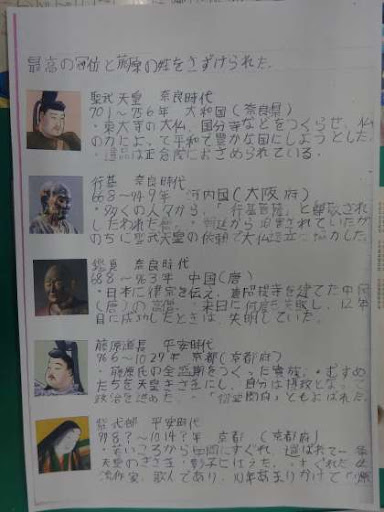 最高の冠位と藤原の姓をさずけられた。
聖武天皇 奈良時代
701～756年 大和国(奈良県)
・東大寺の大仏、国分寺などをつくらせ、仏
の力によって平和で豊かな国にしようとした。
・遺品は正倉院におさめられている。
行基 奈良時代
668～749年 河内国(大阪府)
・多くの人々から、「行基菩薩」と
したわれた
のちに聖武天皇の依頼で大仏
鑑真 奈良時代
688～763年 中国(唐)
・日本に律宗を伝え、唐招提寺を建てた中国
(唐)の高僧。・来日に何度も失敗し、12年
目に成功したときは、失明していた。
藤原道長 平安時代
966～1027年 京都(京都府)
・藤原氏の全盛期をつくった貴族。・むすめ
たちを天皇きさきにし、自分は摂政となって
政治を進めた。・「御堂関白」ともよばれた。
紫式部 平安時代
978?～1014?年 京都(京都府)
才にすぐれ、選ばれて一条
天皇のきさき・彰子につかえた。・すぐれた
歌人であり、10年あまりかけて